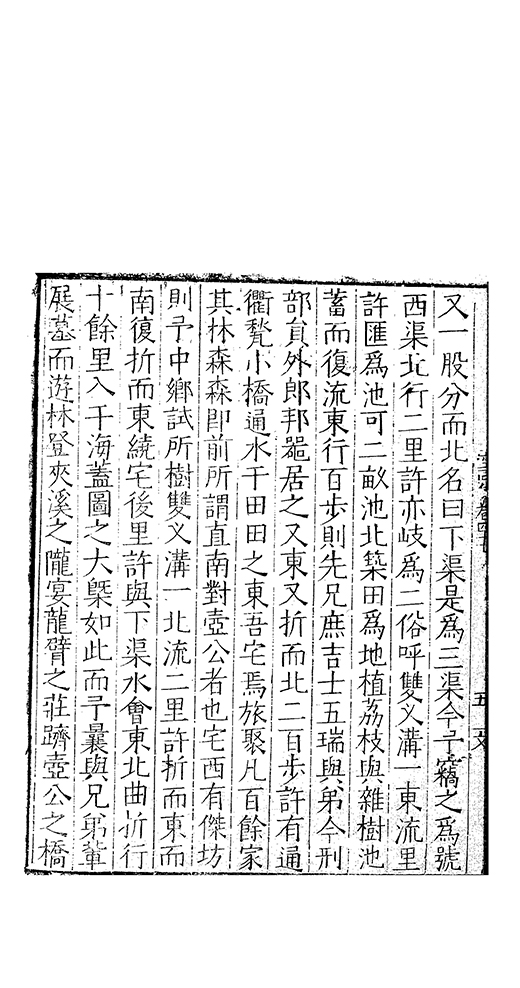 又一股分而北名曰下渠是爲三渠今予竊之爲號
西渠北行二里許亦岐爲二俗呼雙义溝一東流里
許匯爲池可二畝池北築田爲地植荔枝與雜樹池
蓄而復流東行百歩則先兄庶吉士五瑞與弟今刑
部員外郎邦噐居之又東又折而北二百歩許有通
衢甃小橋通水于田田之東吾宅焉旅聚凡百餘家
其林森森即前所謂直南對壺公者也宅西有傑坊
則予中鄉試所樹雙义溝一北流二里許折而東而
南復折而東繞宅後里許與下渠水會東北曲折行
十餘里入于海蓋圖之大槩如此而予曩與兄弟輩
展墓而遊林登夾溪之隴宴龍臂之莊躋壺公之橋